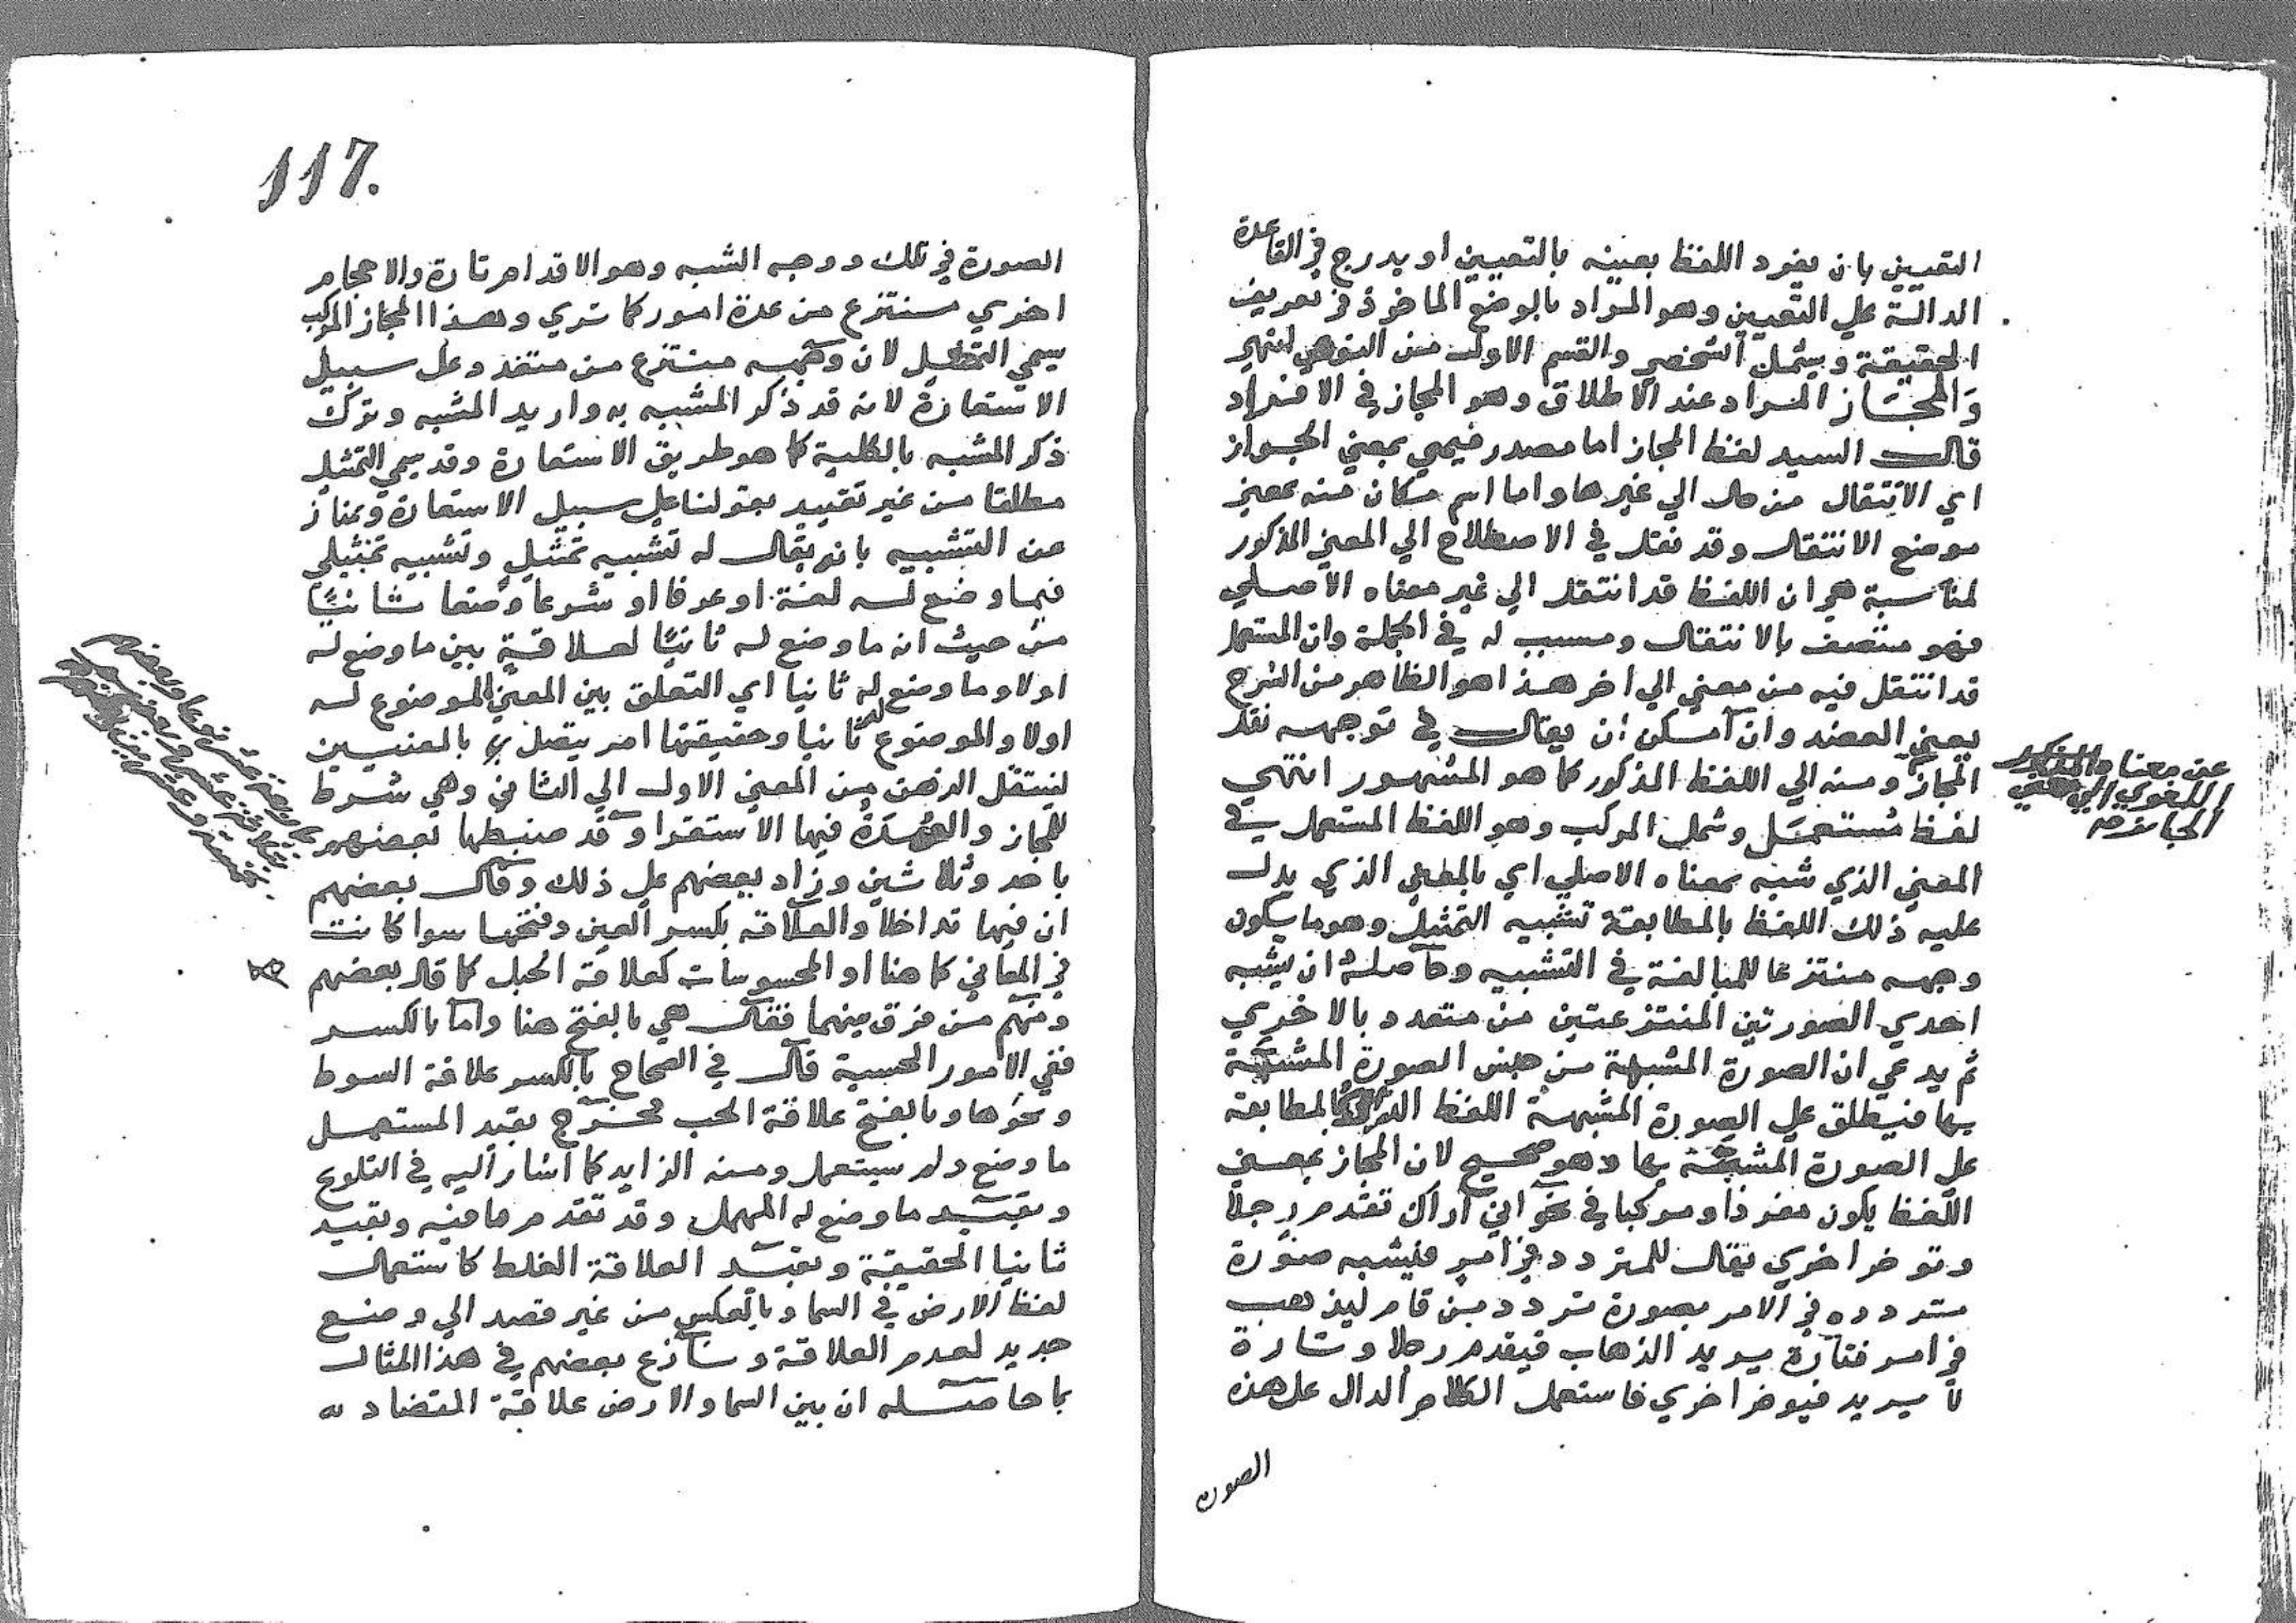 التعيين بان يفرد اللفظ بعينه بالتعيين او يدرج في القاعدة
الدالة علي التعيين وهو المراد بالوضع الماخوذ في تعريف
الحقيقة ويشمل الشخصي والقسم الاول من النوعي انتهي
والمجاز المراد عند الاطلاق وهو المجاز في الافراد
قال السيد لفظ المجاز اما مصدر ميمي بمعني الجواز
اي الانتقال من حال الي غيرها واما اسم مكان منه بمعني
موضع الانتقال وقد نقل في الاصطلاح الي المعني المذكور
لمناسبة هي ان اللفظ قد انتقل الي غير معناه الاصلي
فهو متصف بالانتقال وسبب له في الجملة وان المستعمل
قد انتقل فيه من معني الي اخر هذا هو الظاهر من الشرح
يعني العضد وان امكن ان يقال في توجيه نقل
المجاز ومنه الي اللفظ المذكور كما هو المشهور انتهي
عن معناه المذكور
اللغوي الي معني
الجايز صح
لفظ مستعمل وشمل المركب وهو اللفظ المستعمل في
المعني الذي شبه بمعناه الاصلي اي بالمعني الذي يدل
عليه ذلك اللفظ بالمطابقة تشبيه التمثيل وهو ما يكون
وجهه منتزعا للمبالغة في التشبيه وحاصله ان يشبه
احدي الصورتين المنتزعتين من متعدد بالاخري
ثم يدعي ان الصورة المشبهة من جنس الصورة المشبهة
بها فيطلق علي الصورة المشبهة اللفظ الدال بالمطابقة
علي الصورة المشبهة بها وهو صحيح لان المجاز بمعني
اللفظ يكون مفردا ومركبا في نحو اني اراك تقدم رجلا
وتوخر اخري يقال للمتردد في امر فيشبه صورة
تردده في الامر بصورة تردد من قام ليذهب
في امر فتارة يريد الذهاب فيقدم رجلا وتارة
لا يريد فيوخر اخري فاستعمل الكلام الدال علي هذه
الصورة
117.
الصورة في تلك ووجه الشبه وهو الاقدام تارة والاحجام
اخري منتزع من عدة امور كما تري وهذا المجاز المركب
يسمي التمثيل لان وجهه منتزع من متعدد وعلي سبيل
الاستعارة لانه قد ذكر المشبه به واريد المشبه وترك
ذكر المشبه بالكلية كما هو طريق الاستعارة وقد يسمي التمثيل
مطلقا من غير تقييد بقولنا علي سبيل الاستعارة ويمتاز
عن التشبيه بانه يقال له تشبيه تمثيل وتشبيه تمثيلي
فيما وضع له لغة او عرفا او شرعا وضعا ثانيًا
من حيث انه ما وضع له ثانيًا لعلاقة بين ما وضع له
اولا وما وضع له ثانيا اي التعلق بين المعني الموضوع له
اولا والموضوع له ثانيا وحقيقتها امر يتصل به بالمعنيين
لينتقل الذهن من المعني الاول الي الثاني وهي شرط
للمجاز والعمدة فيها الاستقرا وقد ضبطها بعضهم
باحد وثلاثين وزاد بعضهم علي ذلك وقال بعضهم
ان فيها تداخلا والعلاقة بكسر العين وفتحها سوا كانت
في المعاني كما هنا او المحسوسات كعلاقة الحبل كما قال بعضهم
ومنهم من فرق بينهما فقال هي بالفتح هنا واما بالكسر
ففي الامور الحسية قال في الصحاح بالكسر علاقة السوط
ونحوها وبالفتح علاقة الحب فخرج بقيد المستعمل
ما وضع ولم يستعمل ومنه الزايد كما اشار اليه في التلويح
وبقيد ما وضع له المهمل وقد تقدم ما فيه وبقيد
ثانيا الحقيقة وبقيد العلاقة الغلط كاستعمال
لفظ الارض في السما وبالعكس من غير قصد الي وضع
جديد لعدم العلاقة ونازع بعضهم في هذا المثال
بما حاصله ان بين السما والارض علاقة التضاد